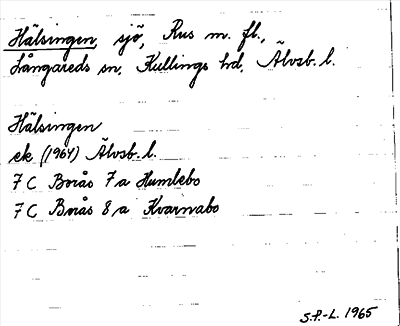 Hälsingen, sjö, Rus m. fl.,
Långareds sn, Kullings hd, Älvsb. l.
Hälsingen
ek (1964) Älvsb. l.
7 C Borås 7 a Humlebo
7 C Borås 8 a Kvarnabo
S.P.-L. 1965